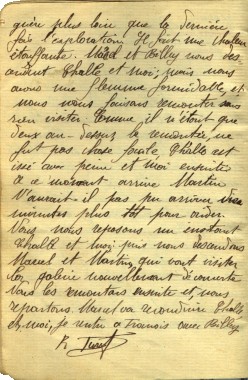 guère plus loin que la dernière
fois l'exploration. Il fait une chaleur
étouffante. Maud et Billy nous
Challe et moi, mais nous
avons une flemme formidable et
nous nous faisons remonter sans
rien visiter. Comme il n'étant que
deux au-dessus la remontée ne
fut pas chose facile Challe est
issé avec peine et moi ensuite
à ce moment arrive Martin
n'aurait-il pas pu arriver
minutes plus tôt pour aider.
Nous nous reposons un instant
Challe et moi puis nous descendons
Marcel et Martin qui vont visiter
la galerie nouvellement découverte
Nous les remontons ensuite et nous
repartons. Marcel va reconduire Challe
et moi, je rentre à Francis avec Billy
R.